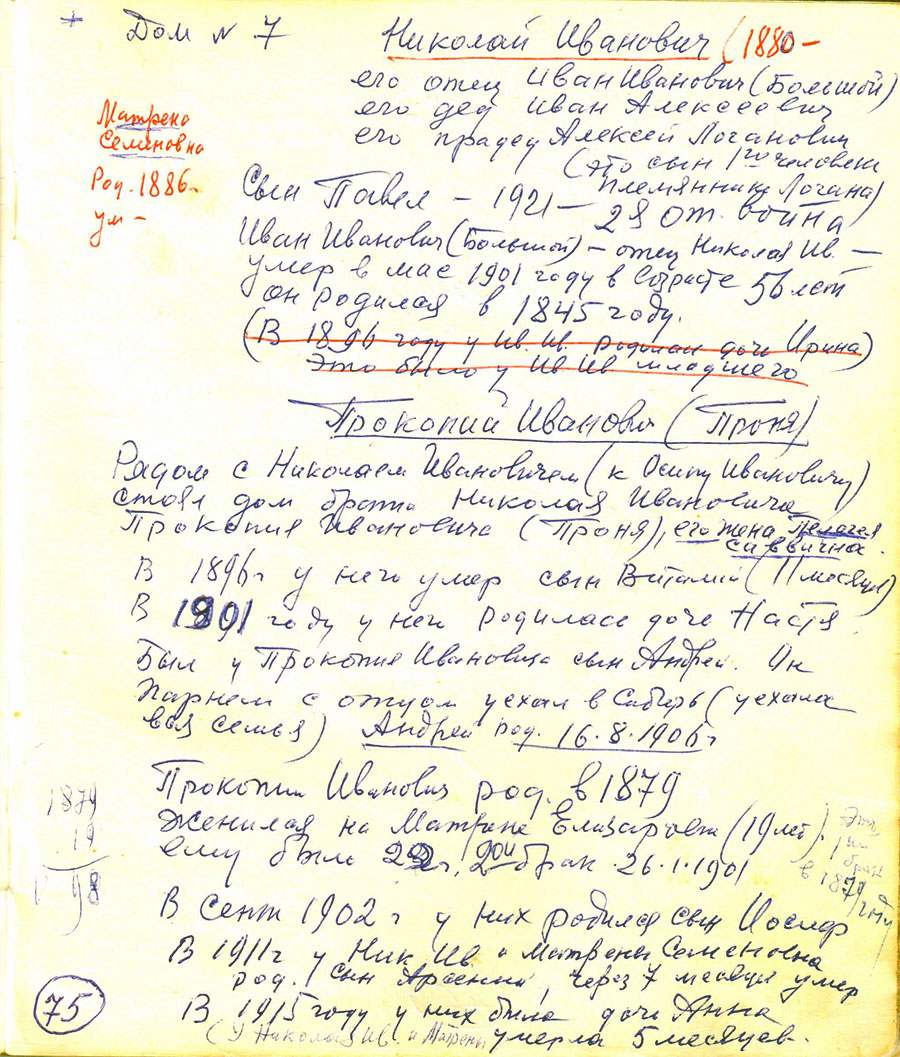 Дом № 7
Николай Иванович (1880 –
его отец Иван Иванович (Большой)
его дед Иван Алексеевич
его прадед Алексей Логанович
(это сын 1го человека
племянника Логана)
Матрена
Семеновна
Род. 1886г
ум –
Сын Павел – 1921 – 28 от. война
Иван Иванович (Большой) – отец Николая Ив. –
умер в мае 1901 году в возрасте 56 лет
он родился в 1845 году.
(В 1896 году у Ив. Ив. родилась дочь Ирина)
Это было у Ив Ив младшего
Прокопий Иванович (Проня)
Рядом с Николаем Ивановичем (к Осипу Ивановичу)
стоял дом брата Николая Ивановича
Прокопия Ивановича (Проня), его жена Пелагея
Саввична.
В 1896г у него умер сын Виталий (11 месяцев)
В 1901 году у него родилась дочь Настя
Был у Прокопия Ивановича сын Андрей. Он
парнем с отцом уехал в Сибирь (уехала
вся семья) Андрей род. 16.8.1906г
Прокопий Иванович род. в 1879
женился на Матрене Елизаровне (19 лет).
ему было 22г, 2ой брак 26.1.1901
Это
1ый
брак
в 1879 году
1879
19
98
В сент 1902 г у них родился сын Иосиф
В 1911г у Ник Ив. и Матрены Семеновна
род. сын Арсений, через 7 месяцев умер
В 1915 году у них была дочь Анна
(У Николая Ив. и Матрены умерла 5 месяцев.
75